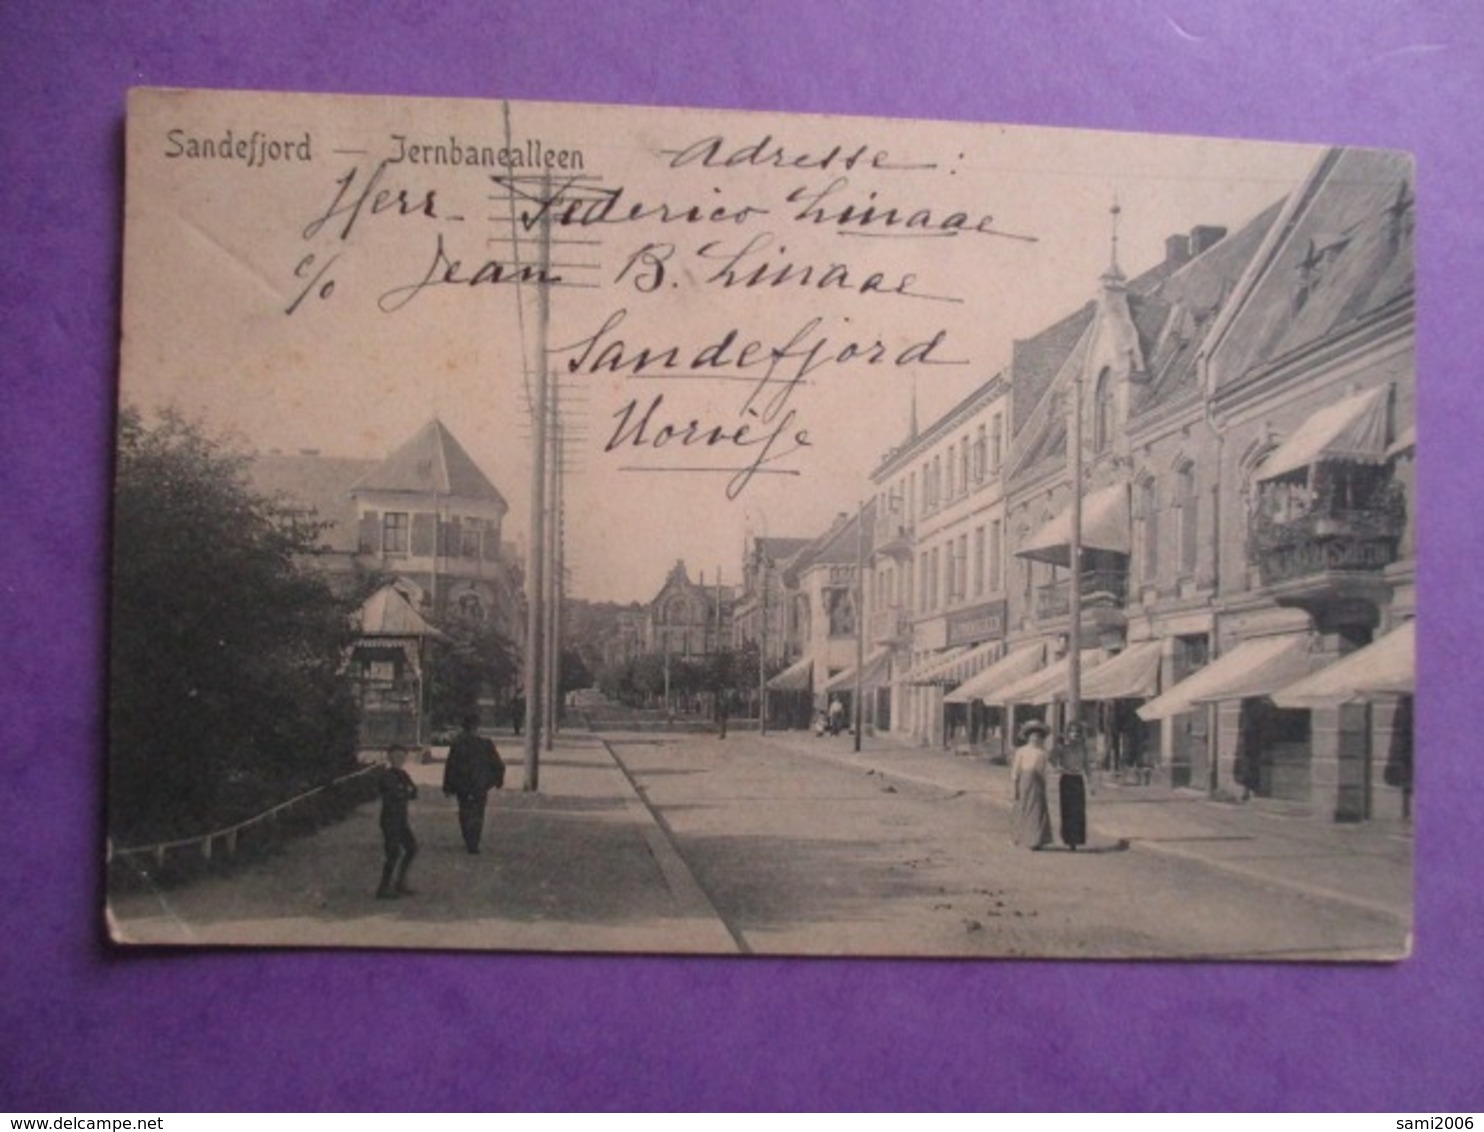 Sandefjord — Jernbanealleen
Adresse:
Herr Federico Linaae
c/o Jean B. Linaae
Sandefjord
Norvège
sami2006